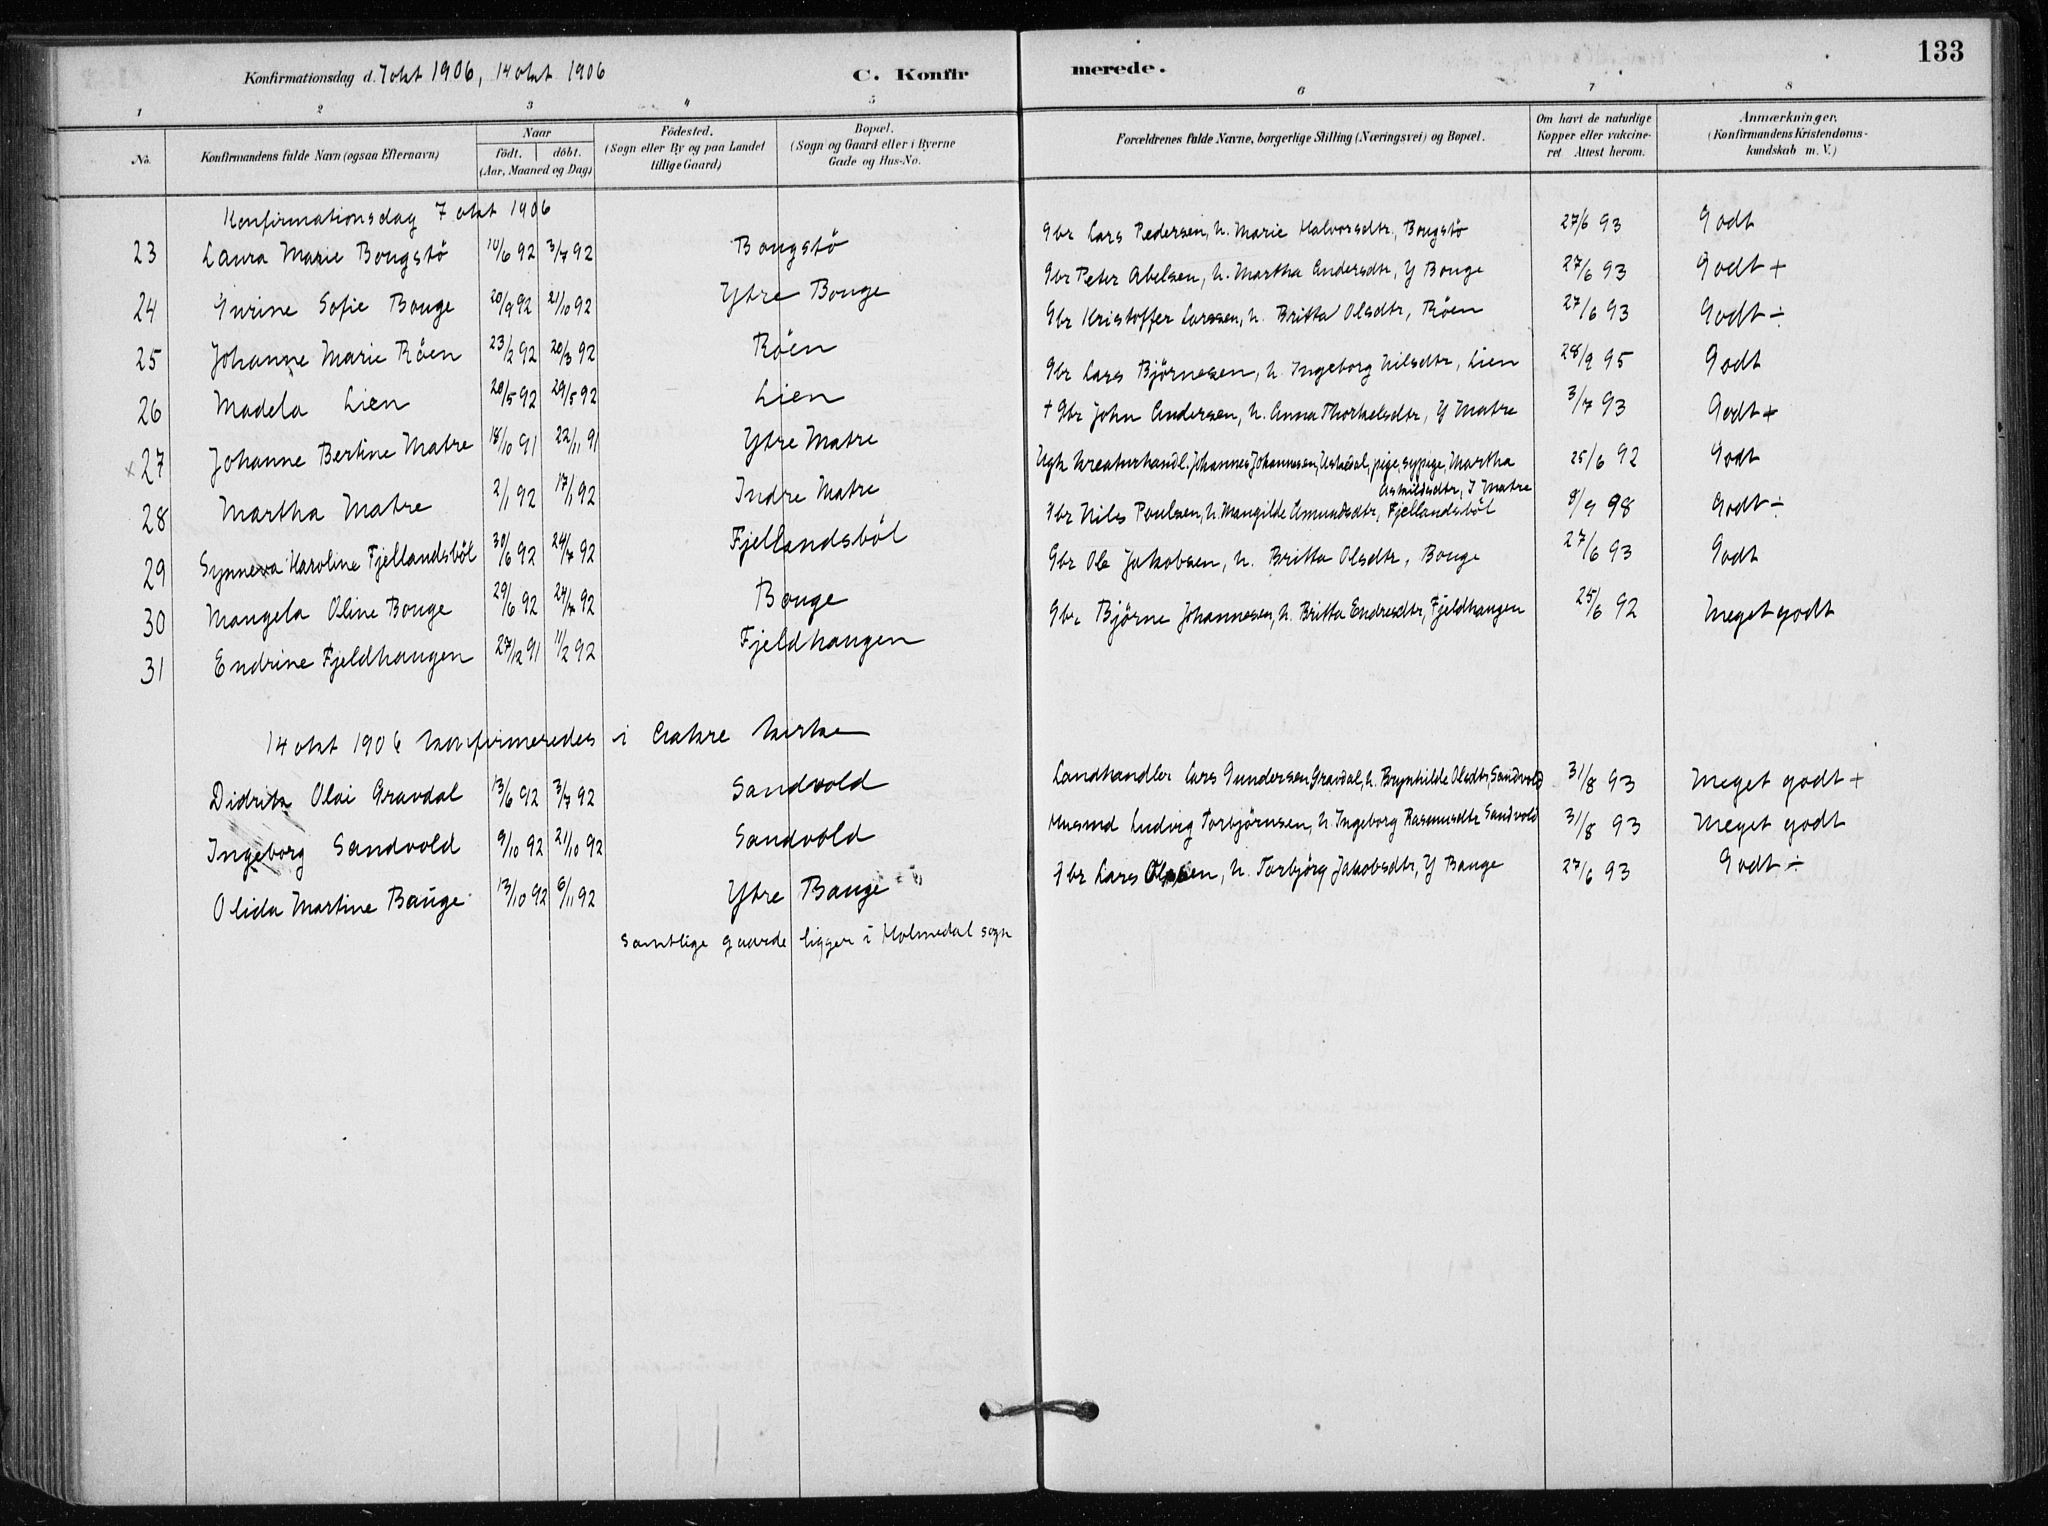 133
Konfirmationsdag d. 7 okt 1906, 14 okt 1906 C. Konfirmerede.
1 2 3 4 5 6 7 8
No. Konfirmandens fulde Navn (ogsaa Efternavn) Naar födt. döbt. (Aar, Maaned og Dag) Födested. (Sogn eller By og paa Landet tillige Gaard) Bopæl. (Sogn og Gaard eller i Byerne Gade og Hus-No. Forældrenes fulde Navne, borgerlige Stilling (Næringsvei) og Bopæl. Om havt de naturlige Kopper eller vakcineret Attest herom. Anmærkninger. (Konfirmandens Kristendomskundskab m. V.)
Konfirmationsdag 7 okt 1906
23 Laura Marie Bougstö 10/6 92 3/7 92 Bougstö Gbr Lars Pedersen, h. Marie Halvorsdtr, Bougstö 27/6 93 Godt
24 Gurine Sofie Bouge 20/9 92 21/10 92 Ytre Bouge Gbr Peter Abelsen, h. Martha Andersdtr, Y Bouge 27/6 93 Godt +
25 Johanne Marie Röen 23/2 92 20/3 92 Röen Gbr Kristoffer Larssen, h. Britta Olsdtr, Röen 27/6 93 Godt ÷
26 Madela Lien 20/5 92 29/5 92 Lien Gbr Lars Björnesen, h. Ingeborg Nilsdtr, Lien 28/9 95 Godt
x 27 Johanne Bertine Matre 18/10 91 22/11 91 Ytre Matre + Gbr John Andersen, h. Anna Thorkelsdtr, Y Matre 3/7 93 Godt +
28 Martha Matre 2/1 92 17/1 92 Indre Matre Ugk kreaturhandl. Johannes Johannesen, Uskedal, pige, sypige, Martha Askildsdtr, I Matre 25/6 92 Godt
29 Synneva Karoline Fjellandsböl 30/6 92 24/7 92 Fjellandsböl Fbr Nils Poulsen, h. Mangilde Amundsdtr, Fjellandsböl 8/9 98 Godt ÷
30 Mangela Oline Bouge 29/6 92 24/7 92 Bouge Gbr Ole Jakobsen, h. Britta Olsdtr, Bouge 27/6 93 Godt
31 Endrine Fjeldhaugen 27/12 91 11/2 92 Fjeldhaugen Gbr Björne Johannesen, h. Britta Endresdtr, Fjeldhaugen 25/6 92 Meget godt
14 okt 1906 konfirmeredes i Aakre kirke
Didrik Olai Gravdal 13/6 92 3/7 92 Sandvold Landhandler Lars Gundersen Gravdal, h. Brynhilde Olsdtr, Sandvold 31/8 93 Meget godt +
Ingeborg Sandvold 9/10 92 21/10 92 Sandvold Husmd Ludvig Torbjörnsen, h. Ingeborg Rasmusdtr Sandvold 31/8 93 Meget godt
Olida Martine Bauge 13/10 92 6/11 92 Ytre Bauge Fbr Lars Olsen, h. Torbjörg Jakobsdtr, Y Bauge 27/6 93 Godt ÷
Samtlige gaarde ligger i Holmedal sogn